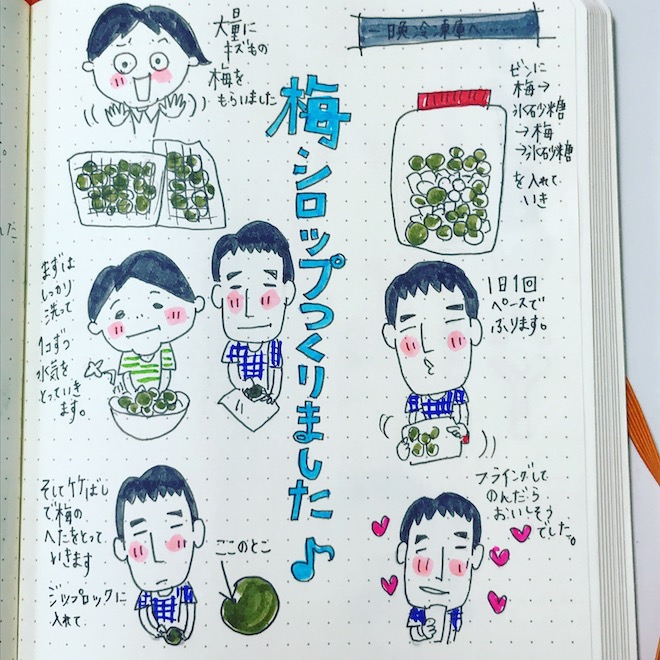 梅シロップつくりました♪
大量に
キズもの
梅を
もらいました
まずは
しっかり
洗って
1コずつ
水気を
とっていき
ます。
そしてケケばし
で梅の
へたをとって
いきます
ジップロックに
入れて
ここのとこ
一晩冷凍庫へ……
ビンに
梅→
氷砂糖
→梅
→氷砂糖
を入れて
いき
1日1回
ペースで
ふります。
フライングして
のんだら
おいしそう
でした。